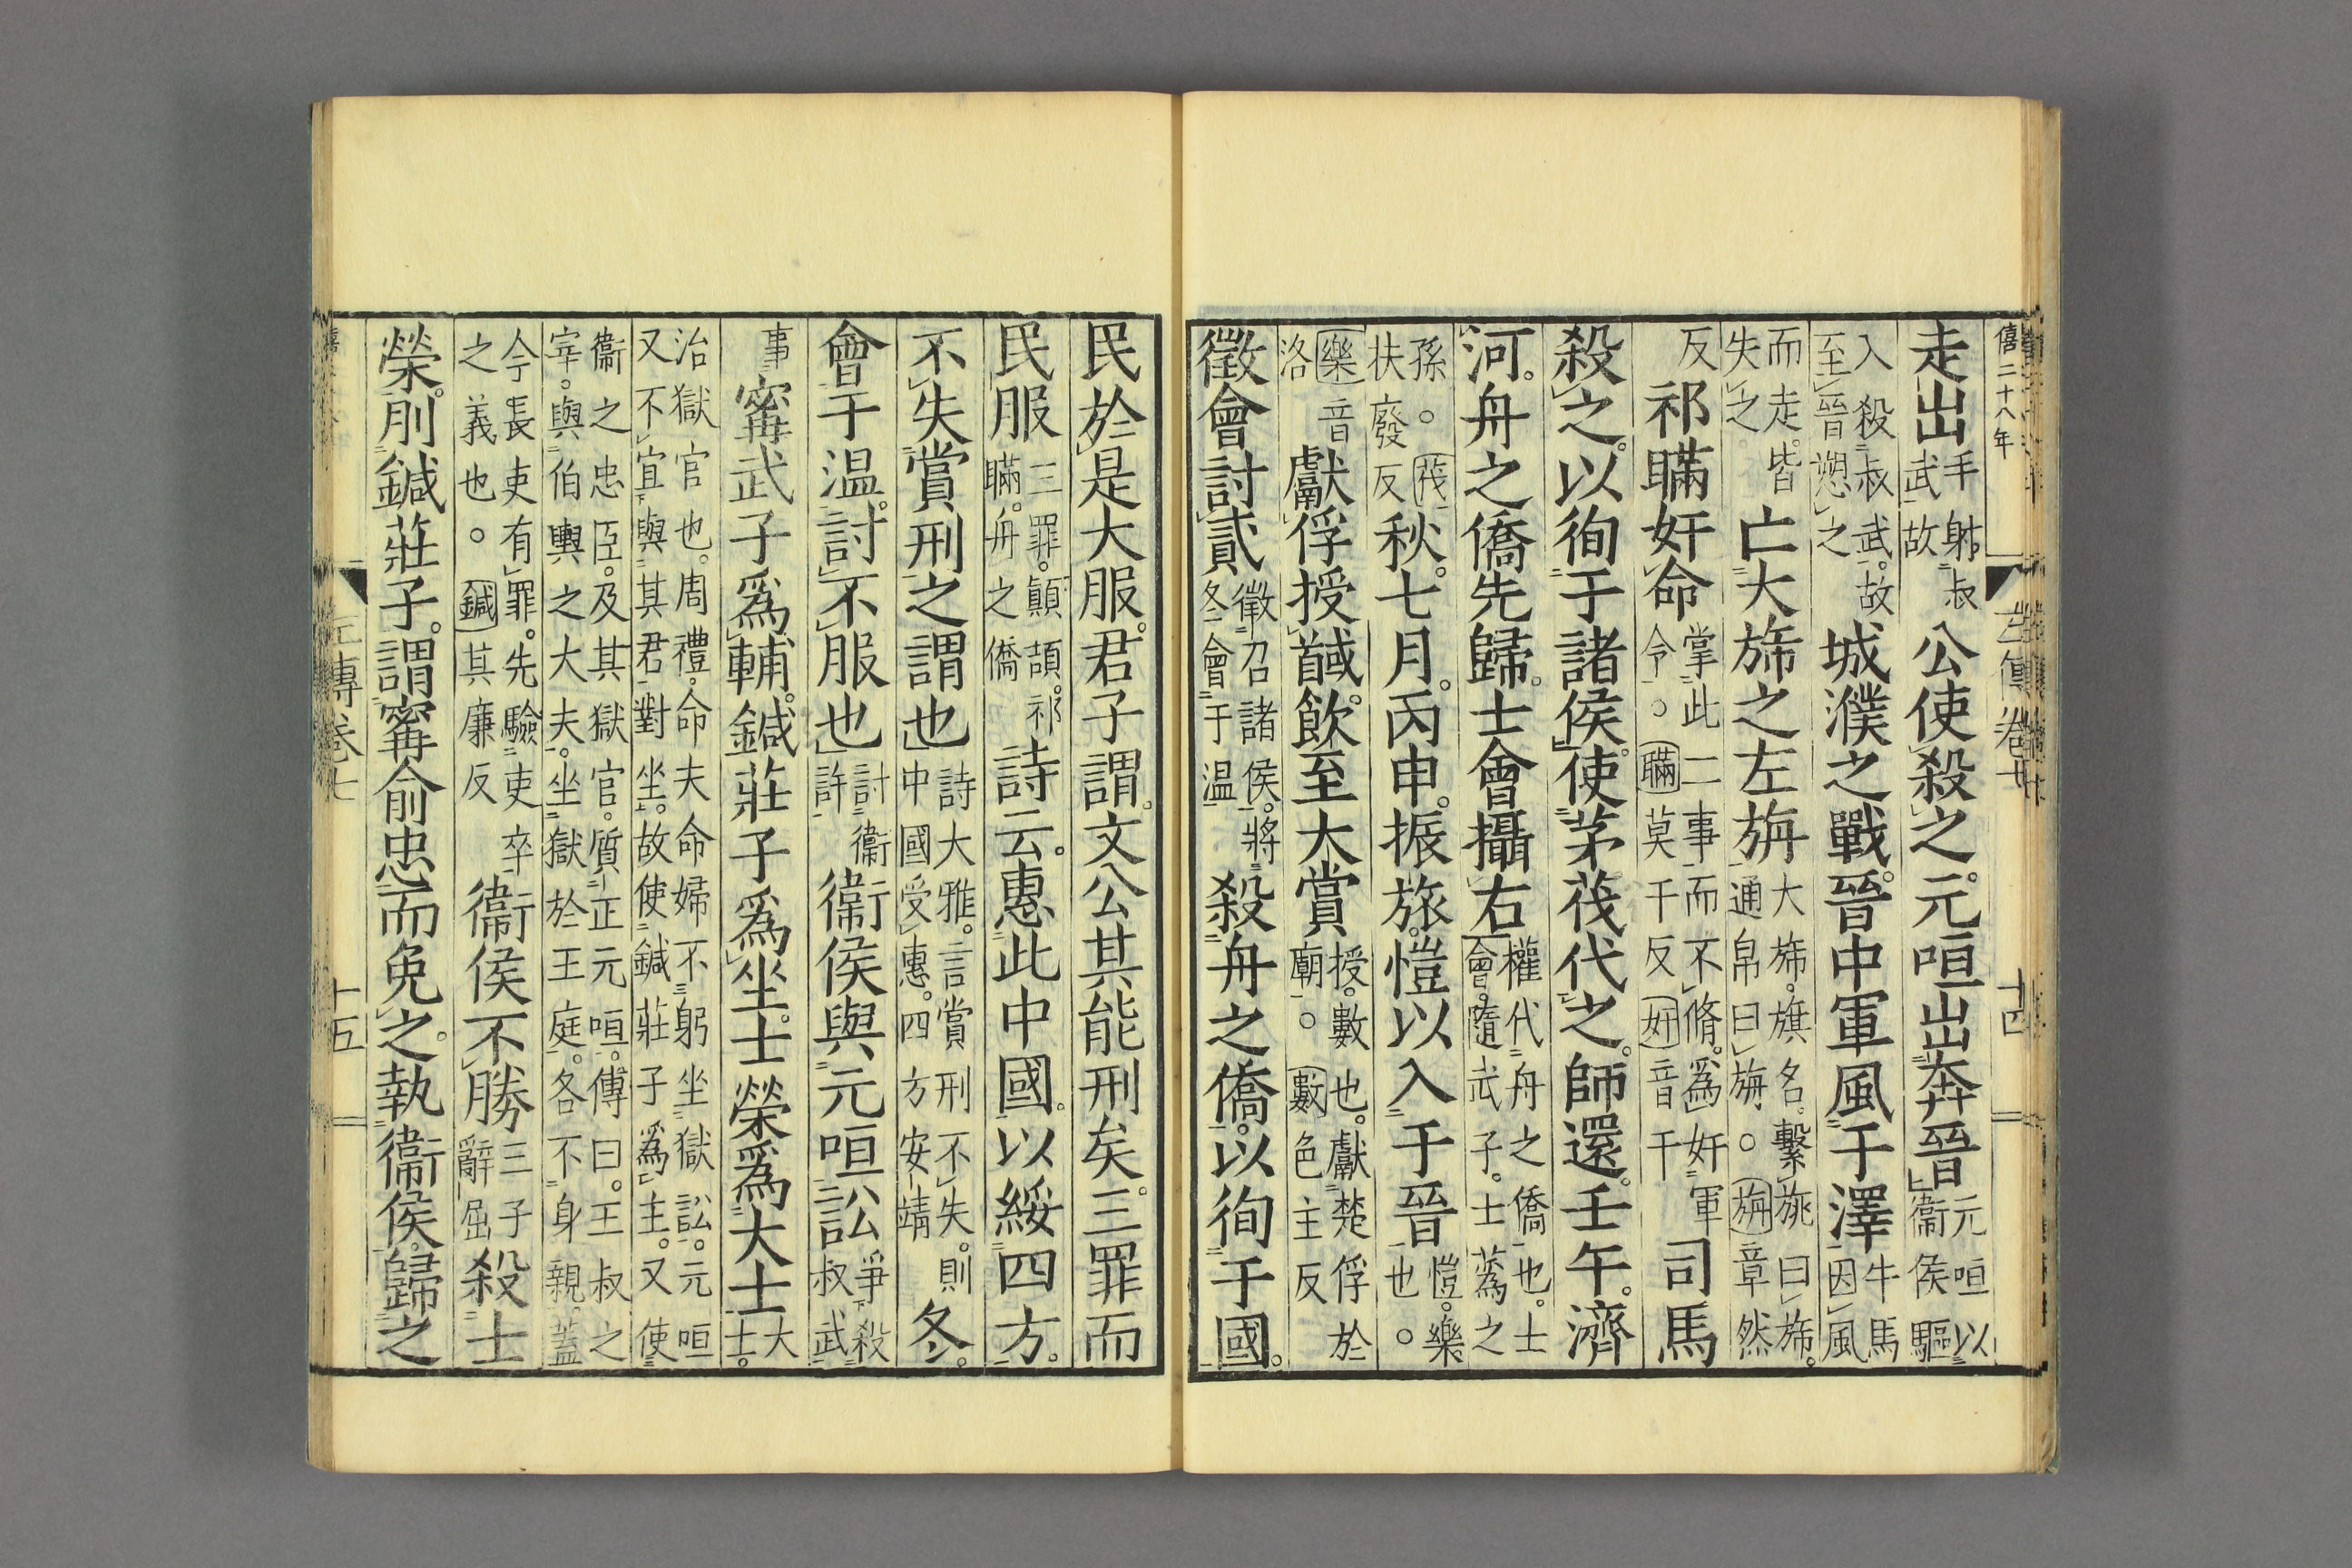 僖二十八年
左傳卷七
十四
走出手射叔武故公使殺之元咺出奔晉元咺以衞侯驅
入殺叔武故至晉愬之城濮之戰晉中軍風于澤牛馬因風
而走皆失之亡大旆之左旃大旆旗名繫旐曰旆通帛曰旃○旃章然
反祁瞞奸命掌此二事而不脩爲奸軍令○瞞莫干反奸音干司馬
殺之以徇于諸侯使茅茷代之師還壬午濟
河舟之僑先歸士會攝右權代舟之僑也士會隨武子士蒍之
孫○茷扶廢反秋七月丙申振旅愷以入于晉愷樂也○
樂音洛獻俘授馘飮至大賞授數也獻楚俘於廟○數色主反
徵會討貳徵召諸侯將冬會于温殺舟之僑以徇于國
民於是大服君子謂文公其能刑矣三罪而
民服三罪顚頡祁瞞舟之僑詩云惠此中國以綏四方
不失賞刑之謂也詩大雅言賞刑不失則中國受惠四方安靖冬
會于温討不服也討衞許衞侯與元咺訟爭殺叔武
事甯武子爲輔鍼莊子爲坐士榮爲大士大士
治獄官也周禮命夫命婦不躬坐獄訟元咺又不宜與其君對坐故使鍼莊子爲主又使
衞之忠臣及其獄官質正元咺傳曰王叔之宰與伯輿之大夫坐獄於王庭各不身親蓋
今長吏有罪先驗吏卒之義也○鍼其廉反衞侯不勝三子辭屈殺士
榮刖鍼莊子謂甯俞忠而免之執衞侯歸之
左傳卷七
十五